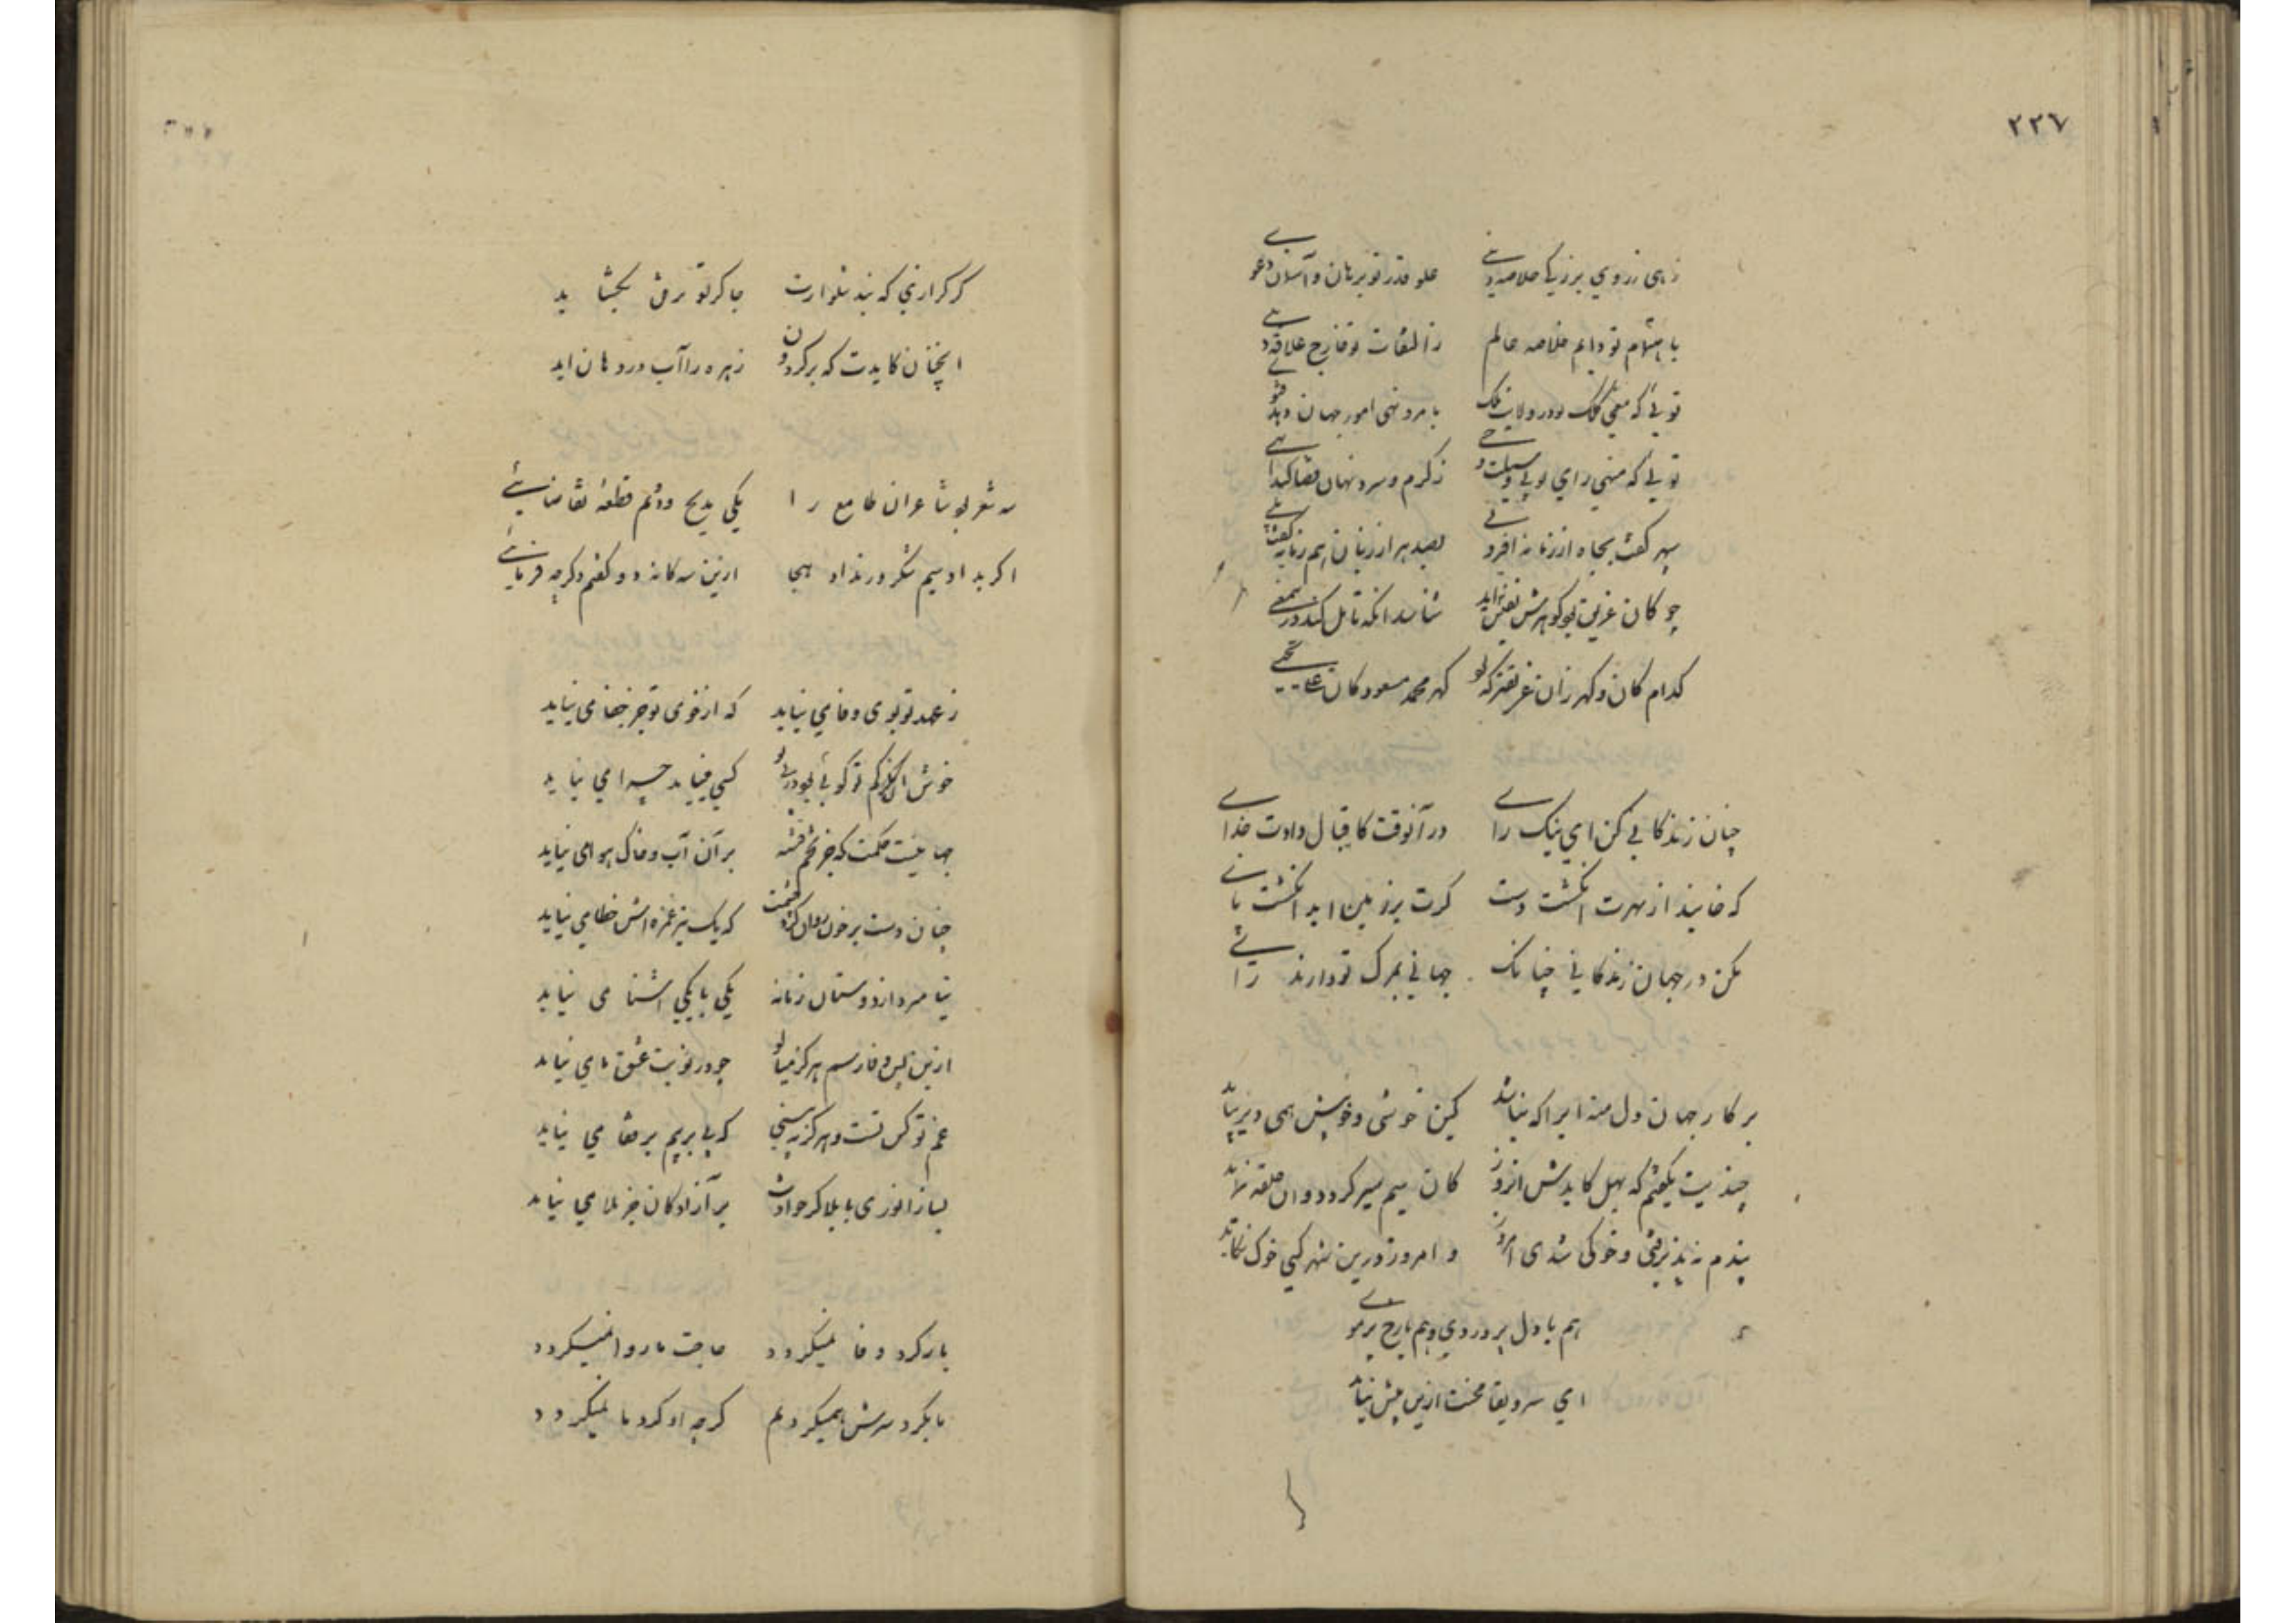 ٢٢٧
زهی زروی بزرگی خلاصه دنیی علو قدر تو برهان و آسمان دعوی
باهتمام تو دایم خلاصه عالم ز التفات تو فارغ علاقه
تویی که مفتی کلک تو در ولایت ملک بامر و نهی امور جهان دهد فتوی
تویی که منهی رای تو بی وسیلت وحی ز کرم و سرد نهان قضا کند
سپهر گفت بجاه از زمانه افزونی بصد هزار زبان هم زمانه گفت بلی
چو کان غریب بود گوهرش نفیس آید شناسد انکه تامل کند درین معنی
کدام کان و گهر زان غریبتر که بود گهر محمد مسعود و کان علی یحیی
چنان زندگانی کن ای نیک رای در آنوقت کاقبال دادت خدای
که خایند از بهرت انگشت دست گرت بر زمین اید انگشت پای
مکن در جهان زندگانی چنانک جهانی بمرگ تو دارند رای
بر کار جهان دل منه ایرا که نشاید کین خوشی و خوبیش همی دیر نپاید
چندیت بگفتم که بهل کایدش ان روز کان سیم سپر گردد و ان حلقه نماند
پندم نپذیرفتی و خوکی شدی امروز و امروز درین شهر کسی خوک نگاید
هم با دل پر دردی و هم با رخ پر موی
ای سرو بقا محنت ازین پیش نیاید
گر گزاری که بند شلوارت چاکر تو بمرفق بگشاید
انچنان کایدت که بر گردون زهره را آب در دهان اید
سه شعر بود شاعران طامع را یکی مدیح و دوم قطعه تقاضایی
اگر بداد سیم شکر ور نداد هجا ازین سه گانه دو گفتم دگر چه فرمایی
ز عهد تو بوی وفا می نیاید که از خوی تو جز جفا می نیاید
کسی می نیاید چرا می نیاید
جهانیست حکمت که جز تخم فتنه بر آن آب و خاک و هوا می نیاید
چنان دست بر خون روان کرد چشمت که یک تیر غمزه اش خطا می نیاید
نیامد در ازدوستان زمانه یکی با یکی اشنا می نیاید
ازین پس وفا رسم هرگز مبادا چو در نوبت عشق ما می نیاید
غم تو کس تست و هرگز نبینی که پی بر پیم بر قفا می نیاید
بساز انوری با بلا کز حوادث بر آزادگان جز بلا می نیاید
یار گرد وفا نمیگردد حاجت ما روا نمیگردد
ما بگرد سرش همیگردیم گرچه او گرد ما نمیگردد